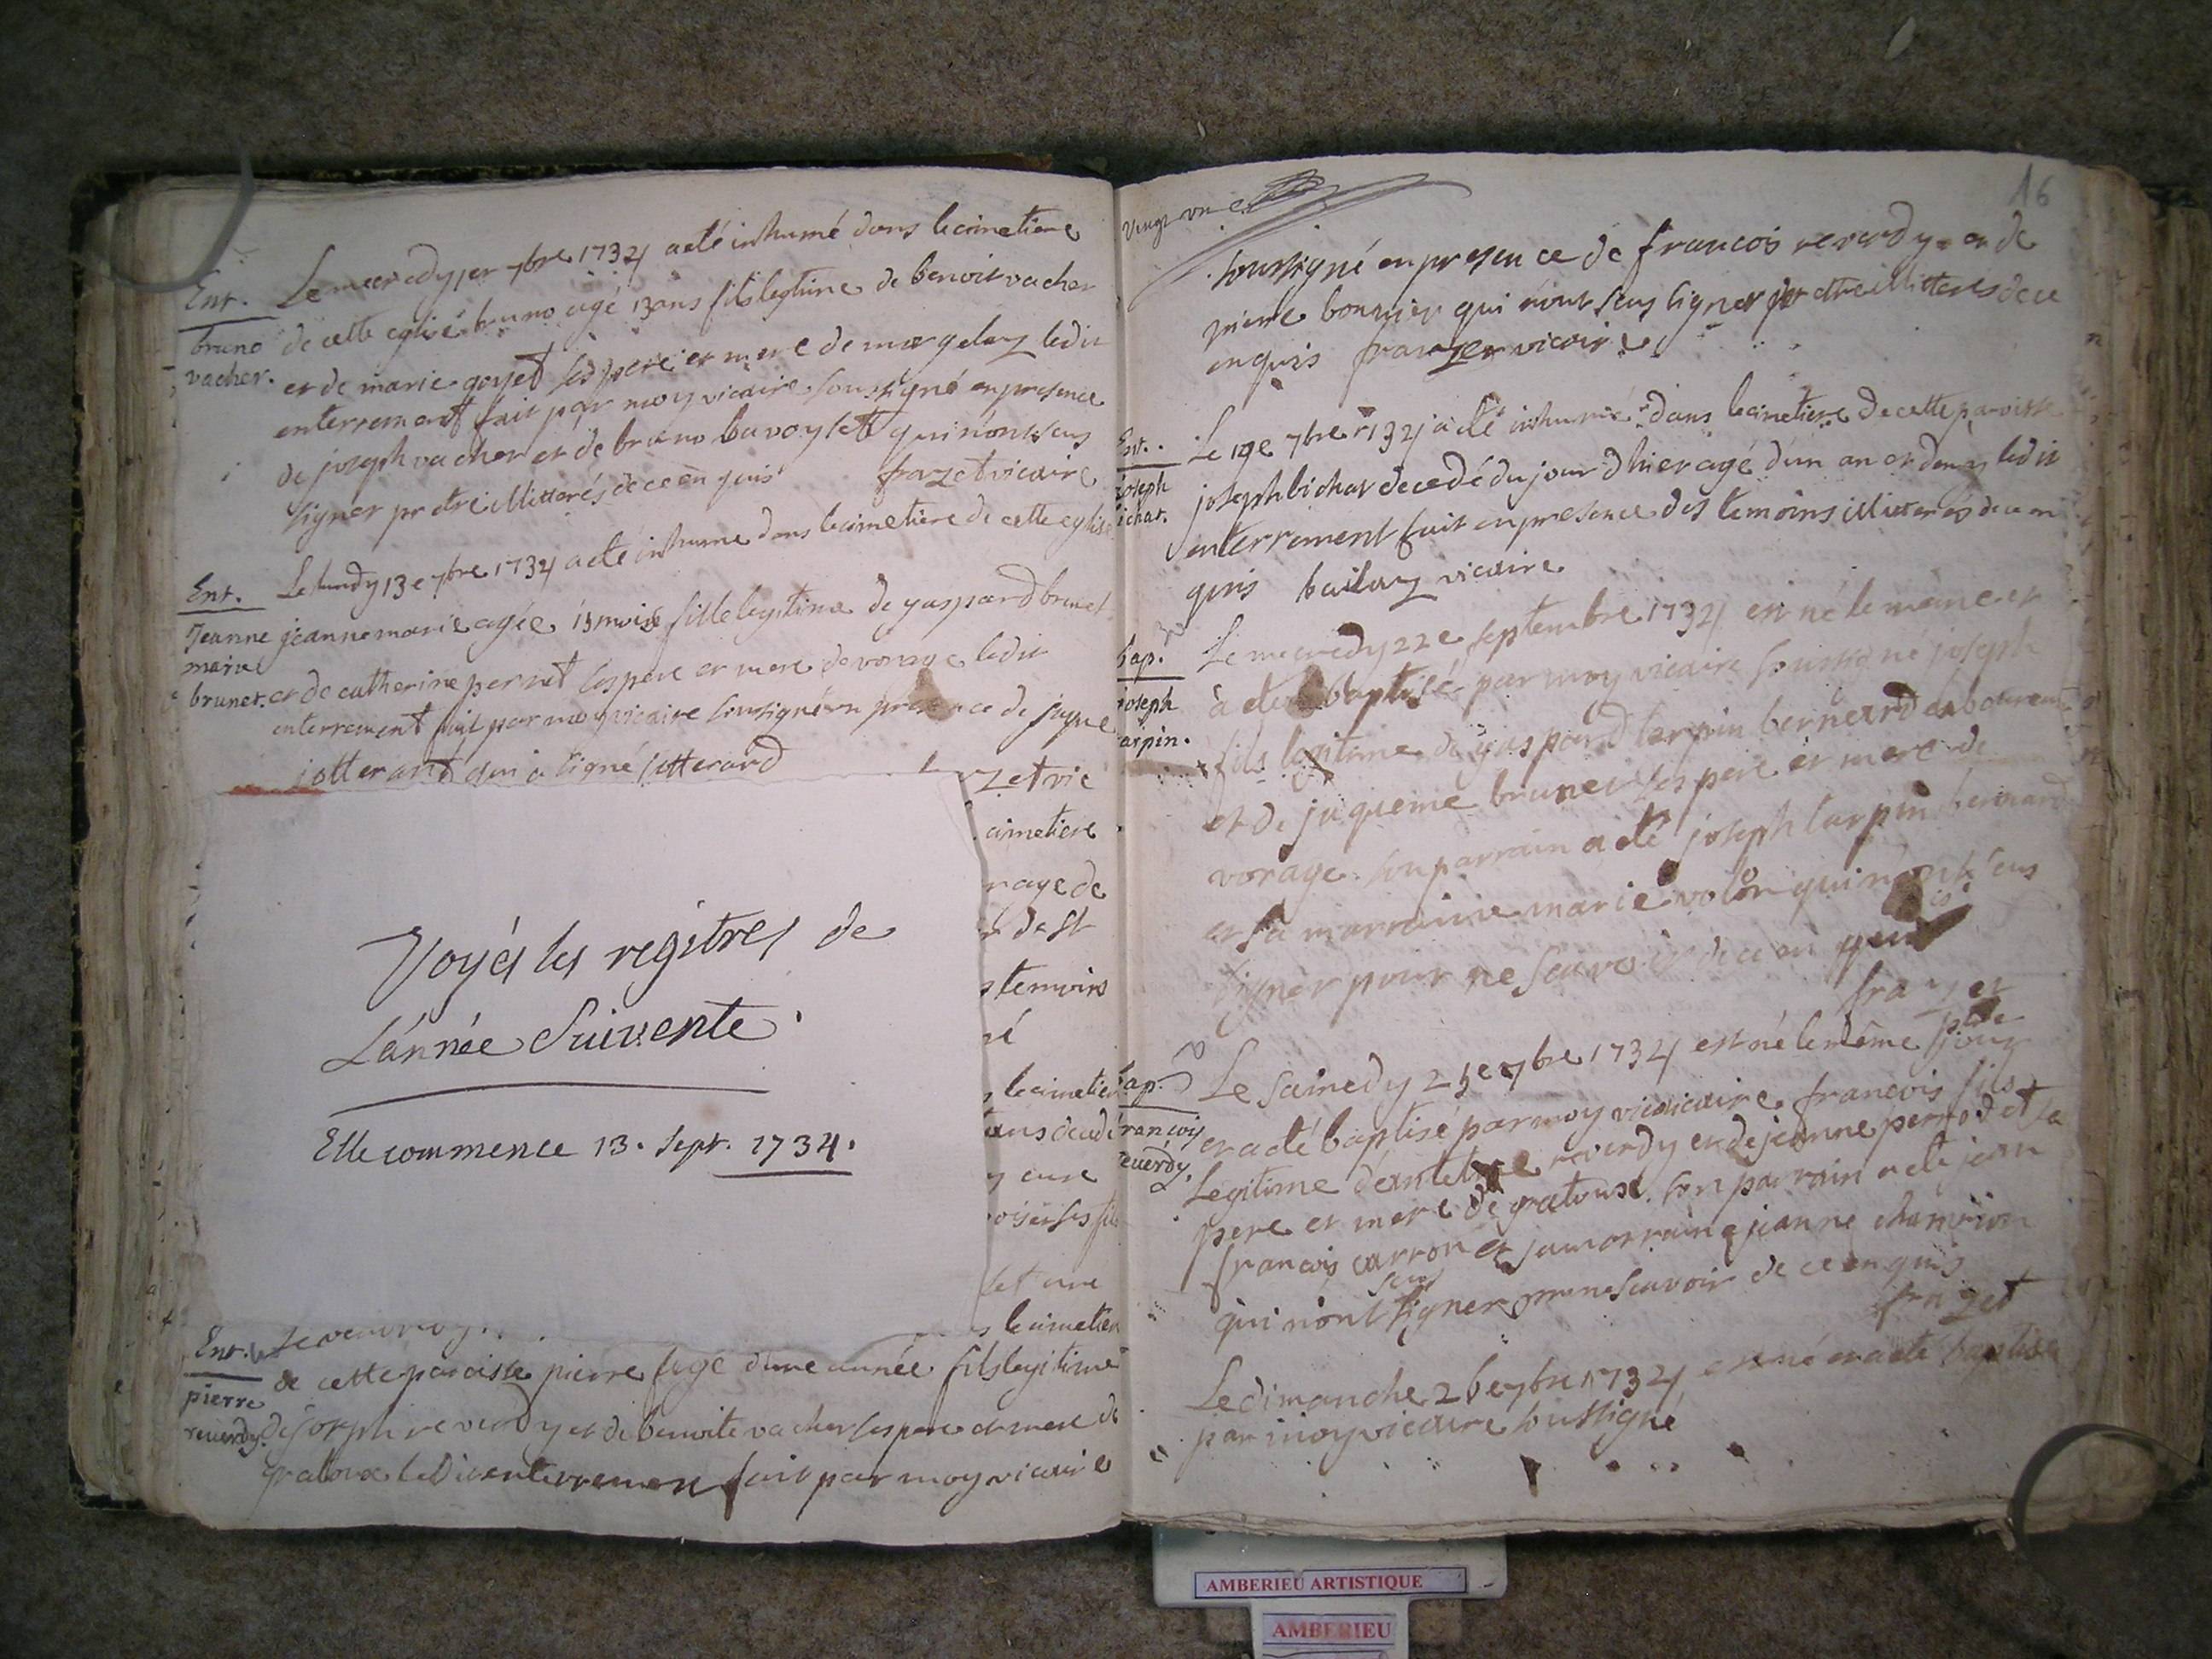 Ent.
bruno
vacher.
Le mecredy 1er 7bre 1734 a eté inhumé dans le cimetiere
de cette eglise bruno agé 13 ans fils legitime de benoit vacher
et de marie goyet ses pere et mere de margelay ledit
enterrement fait par moy vicaire soussigné en presence
de joseph vacher et de bruno buvoyset qui n'ont sceus
signer pr etre illitterés de ce en quis frazet vicaire
Ent.
Jeanne
marie
brunet.
Le lundy 13e 7bre 1734 a eté inhume dans le cimetiere de cette eglise
jeanne marie agée 15 mois fille legitime de gaspard brunet
et de catherine pernet ses pere et mere de vorage ledit
enterrement fait par moy vicaire soussigné en presence de
jotterand qui a signé jotterand
zet vic
cimetiere
rage de
de st
temoins
né
le cimetier
ans decedé
cure
ses fils
cure
s le cimetier
Voyés les regitres de
L'année Suivente.
Elle commence 13. Sept. 1734.
Ent.
pierre
reuerdy.
Le vendredy
de cette paroisse pierre agé dune année fils legitime
de joseph reverdy et de benoite vacher ses pere et mere de
gratoux ledit enterrement fait par moy vicaire
16
vingt un e
soussigné en presence de francois reverdy et de
pierre bonnier qui n'ont sceus signer pr etre illitterés de ce
enquis frazet vicaire
Ent.
joseph
ichat.
Le 19e 7bre 1734 a eté inhumé dans le cimetiere de cette paroisse
joseph bichat decedé du jour d'hier agé d'un an et demy ledit
enterrement fait en presence des temoins illitterés de ce en
quis vicaire
bap.
joseph
arpin.
Le mecredy 22e septembre 1734 est né le meme et
à eté baptisé par moy vicaire soussigné joseph
fils legitime de gaspard larpin bernard
et de juqueme brunet ses pere et mere de
vorage. son parrain a eté joseph larpin bernard
et sa marraine marie volon qui n'ont sceus
signer pour ne scavoir de ce en quis
frazet
bap.
francois
reuerdy.
Le samedy 25e 7bre 1734 est né le même jour
et a eté baptisé par moy vicaicaire francois fils
Legitime d'antelme reverdy et de jeanne perrodet sa
pere et mere de gratoux. son parrain a eté jean
francois carron et sa marraine jeanne chamrion
qui n'ont sceus signer pr ne scavoir de ce enquis
frazet
Le dimanche 26e 7bre 1734 est né et a eté baptisé
par moy vicaire soussigné
AMBERIEU ARTISTIQUE
AMBERIEU